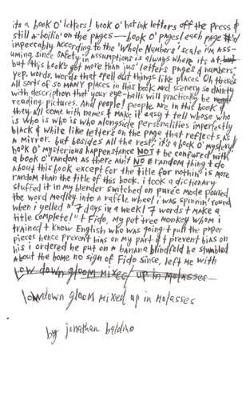 its a book o' letters! book o' hot ink letters off the press &
still a-boilin' on the pages — book o' pages! each page #'d
impeccably according to the 'Whole Numbers' scale i'm ass-
uming since safety in assumptions is always where its at. but
but this books got more than just 'letters pages & numbers,'
yep. words. words that tell out things like places. Oh there's
all sort of so many places in this book and scenery so dainty
with description that your eye-balls will practically be
reading pictures. And people! people are in this book &
they all come with names & make it easy t tell whose who
is who is who alongside personalities imperfectly
black & white like letters on the page that reflects as if
a mirror. but besides all the rest? it's a book o' mystery
book o' mysterious happenstance not t be confused with
a book o' random as there ain't NO random thing t do
about this book except for the title for nothin' is more
random than the title of this book. i took a dictionary
stuffed it in my blender switched on purée mode poured
the word medley into a raffle wheel i was spinnin' round
when i yelled "7 days a week! 7 words t make a
title complete!" t Fido, my pet tree monkey whom i
trained t know English who was going t pull the paper
pieces hence prevent bias on my part & t prevent bias on
his i ordered he put on a banana blindfold he stumbled
about the home no sign of Fido since, left me with
low down gloom mixed up in molasses
lowdown gloom mixed up in molasses
by jonathan baldno